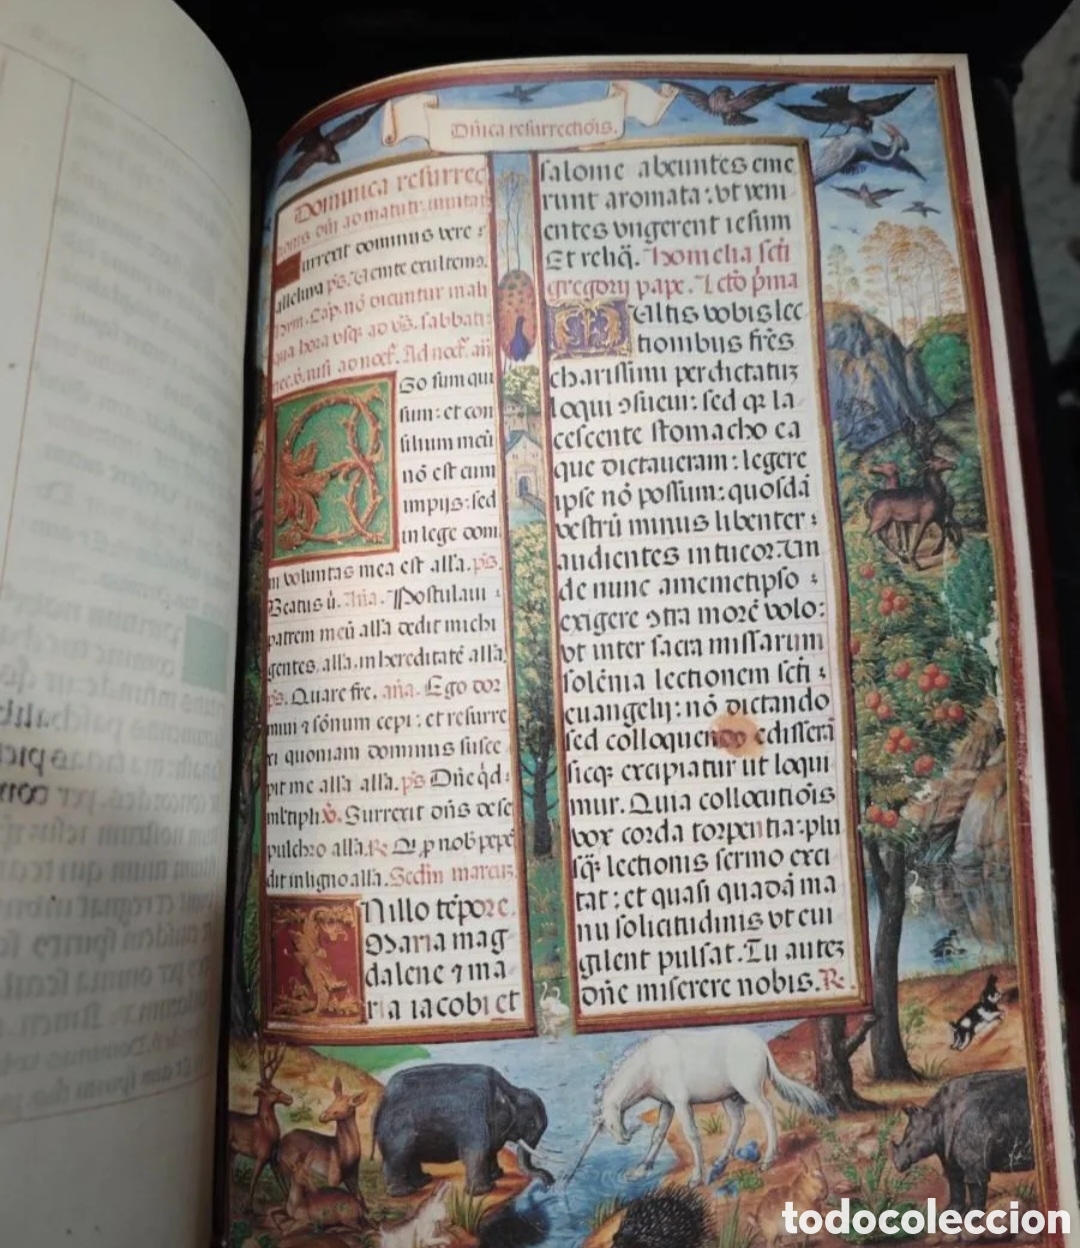 Dnica resurrectiois.
Dominica resurrec
tionis dni ad matuti. inuitat.
Surrexit dominus vere :
alleluya ps. Uenite exultemus.
hym. Cap. nō dicuntur in ali
qua hora vsqz ad vs. sabbati:
nec. v. nisi ad noct. Ad noct. an
Ego sum qui
sum: et con
silium meū
nō est cum
impijs: sed
in lege dom
ni voluntas mea est alla. ps.
Beatus v. Ana. Postulaui :
patrem meū alla dedit michi
gentes. alla. in hereditatē alla.
ps. Quare fre. ana. Ego dor
miui ⁊ sōnum cepi: et resurre
xi quoniam dominus susce
pit me alla alla. ps. Dne qd:
mltipli. v. Surrexit dns de se
pulchro alla. R. Qi p nob pepē
dit in ligno alla. Sedm marcū.
IN illo tēpore.
Maria mag
dalene ⁊ ma
ria iacobi et
salome abeuntes eme
runt aromata: vt veni
entes vngerent iesum
Et reliq. Homelia scti
gregory pape. Lcto pma
Multis vobis lec
tionibus fres
charissimi per dictatuz
loqui ɔsueui: sed qz la
cescente stomacho ea
que dictaueram: legere
ipse nō possum: quosdā
vestrū minus libenter :
audientes intueor. Un
de nunc a memetipso :
exigere ɔtra morē volo:
vt inter sacra missarum
solēnia lectionem scti :
euangelij: nō dictando
sed colloquendo edisserā
sicqz excipiatur ut loqui
mur. Quia collocutiois
vox corda torpentia: plu
sqz lectionis sermo exci
tat: et quasi quadā ma
nu solicitudinis vt eui
gilent pulsat. Tu autez
dne miserere nobis. R.
todocoleccion